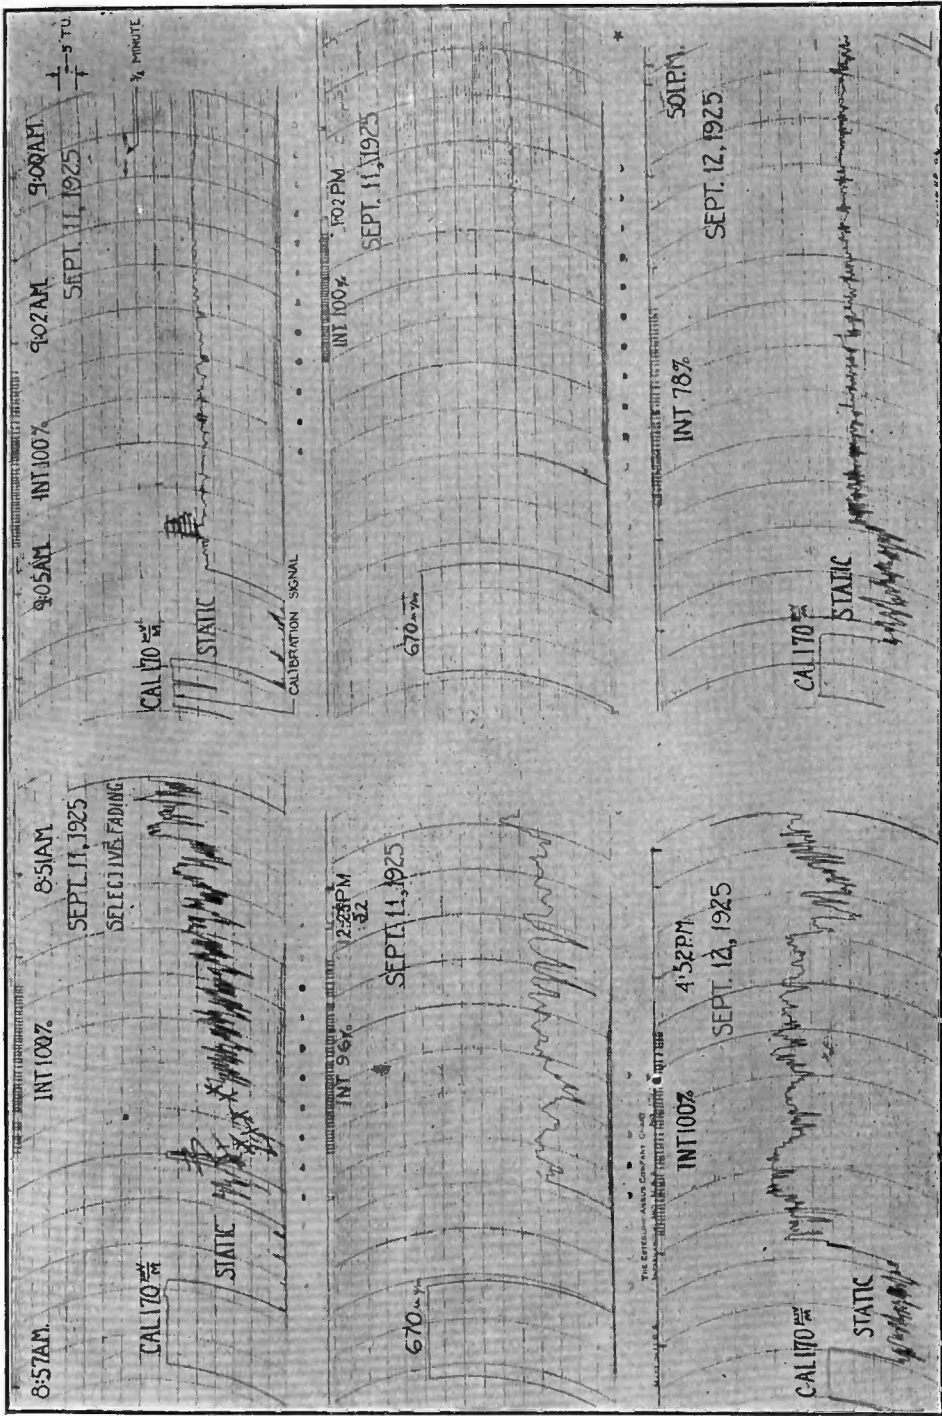 8:57AM. INT100% 8:51AM
SEPT. 11, 1925
SELECTIVE FADING
CAL170 μV/M
STATIC
9:05AM. INT100% 9:02AM 9:00AM.
SEPT. 11, 1925
5 TU.
3/4 MINUTE
CAL170 μV/M
STATIC
CALIBRATION SIGNAL
INT 96%
SEPT. 11, 1925
INT 100%
SEPT. 11, 1925
THE ESTERLINE-ANGUS COMPANY
INT100% 4:52P.M.
SEPT. 12, 1925
CAL170 μV/M
STATIC
INT 78% 501P.M.
SEPT. 12, 1925
CAL170 μV/M
STATIC